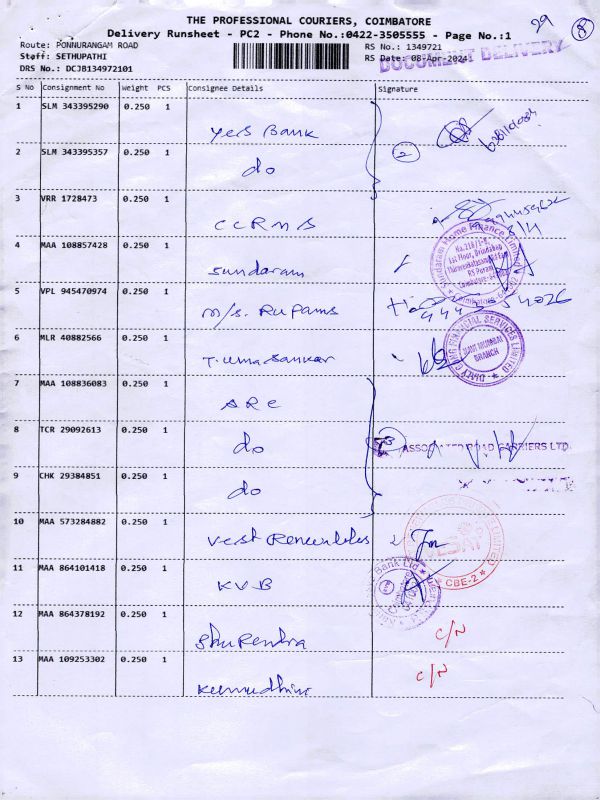 THE PROFESSIONAL COURIERS, COIMBATORE
29
8
Delivery Runsheet - PC2 - Phone No.:0422-3505555 - Page No.:1
Route: PONNURANGAM ROAD
RS No.: 1349721
Staff: SETHUPATHI
RS Date: 08-Apr-2024
DOCUMENT DELIVERY
DRS No.: DCJB134972101
S No Consignment No Weight PCS Consignee Details Signature
1 SLM 343395290 0.250 1
Yes Bank
2
2 SLM 343395357 0.250 1
do
3 VRR 1728473 0.250 1
CCRMS
4 MAA 108857428 0.250 1
Sundaram
Sundaram Home Finance Limited
5 VPL 945470974 0.250 1
M/s. Rupams
6 MLR 40882566 0.250 1
T. Uma Sankar
FINANCIAL SERVICES LIMITED
BRANCH
7 MAA 108836083 0.250 1
ARC
8 TCR 29092613 0.250 1
do
ASSOCIATED ROAD CARRIERS LTD.
9 CHK 29384851 0.250 1
do
10 MAA 573284882 0.250 1
CBE-2
11 MAA 864101418 0.250 1
KVB
Bank Ltd
12 MAA 864378192 0.250 1
C/N
13 MAA 109253302 0.250 1
Kumudhini
C/N